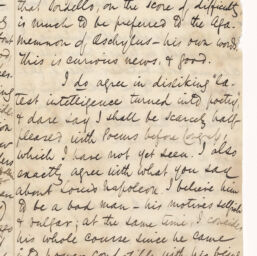 that Sordello, on the score of difficulty
is much to be preferred to the Aga-
memnon of Aeschylus – his own words
this is curious news, & good.
I do agree in disliking "La-
test intelligence turned into poetry"
& dare say I shall be scarcely half-
pleased with Poems before Congress,
which I have not yet seen. I also
exactly agree with what you say
about Louis Napoleon. I believe him
to be a bad man – his motives selfish
& vulgar; at the same time, I consider
his whole course since he came